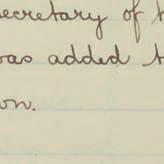 secretary of
was added
on.